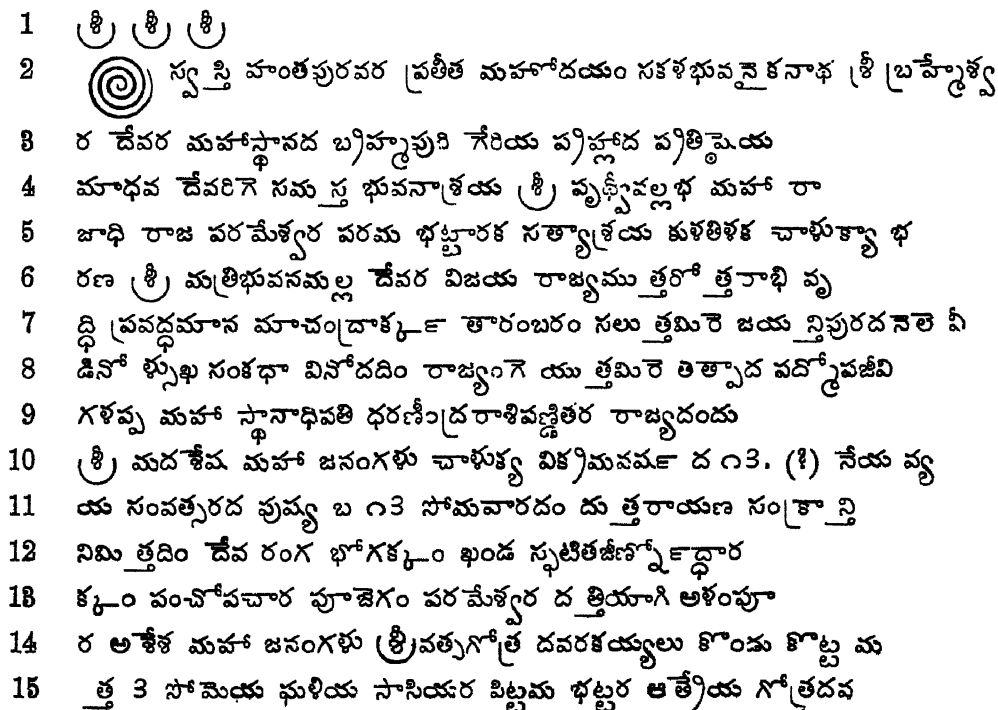 1 శ్రీ శ్రీ శ్రీ
2 స్వస్తి హంతపురవర ప్రతీత మహోదయం సకళభువనైకనాథ శ్రీ బ్రహ్మేశ్వ
3 ర దేవర మహాస్థానద బ్రిహ్మపురి గేరియ ప్రిహ్లాద ప్రతిష్ఠెయ
4 మాధవ దేవరిగె సమస్త భువనాశ్రయ శ్రీ పృథ్వీవల్లభ మహా రా
5 జాధి రాజ పరమేశ్వర పరమ భట్టారక సత్యాశ్రయ కుళతిళక చాళుక్యా భ
6 రణ శ్రీ మత్రిభువనమల్ల దేవర విజయ రాజ్యముత్తరోత్తరాభి వృ
7 ద్ధి ప్రవద్ధమాన మాచంద్రాక్క౯ తారంబరం సలుత్తమిరె జయన్తిపురదనెలె వీ
8 డినోళ్సుఖ సంకథా వినోదదిం రాజ్యంగెయుత్తమిరె తిత్పాద పద్మోపజీవి
9 గళప్ప మహా స్థానాధిపతి ధరణీంద్రరాశిపణ్డితర రాజ్యదందు
10 శ్రీ మదశేష మహా జనంగళు చాళుక్య విక్రమవష౯ ద ౧3. (ఽ) నేయ వ్య
11 య సంవత్సరద పుష్య బ ౧3 సోమవారదందుత్తరాయణ సంక్రాన్తి
12 నిమిత్తదిం దేవ రంగ భోగక్కం ఖండ స్ఫటితజీణ్నో౯ద్ధార
13 క్కం పంచోపచార పూజెగం పరమేశ్వర దత్తియాగి అళంపూ
14 ర అశేశ మహా జనంగళు శ్రీవత్సగోత్ర దవరకయ్యలు కొండు కొట్ట మ
15 త్త 3 సోమెయ ఘళియ సాసియర పిట్టమ భట్టర ఆత్రేయ గోత్రదవ